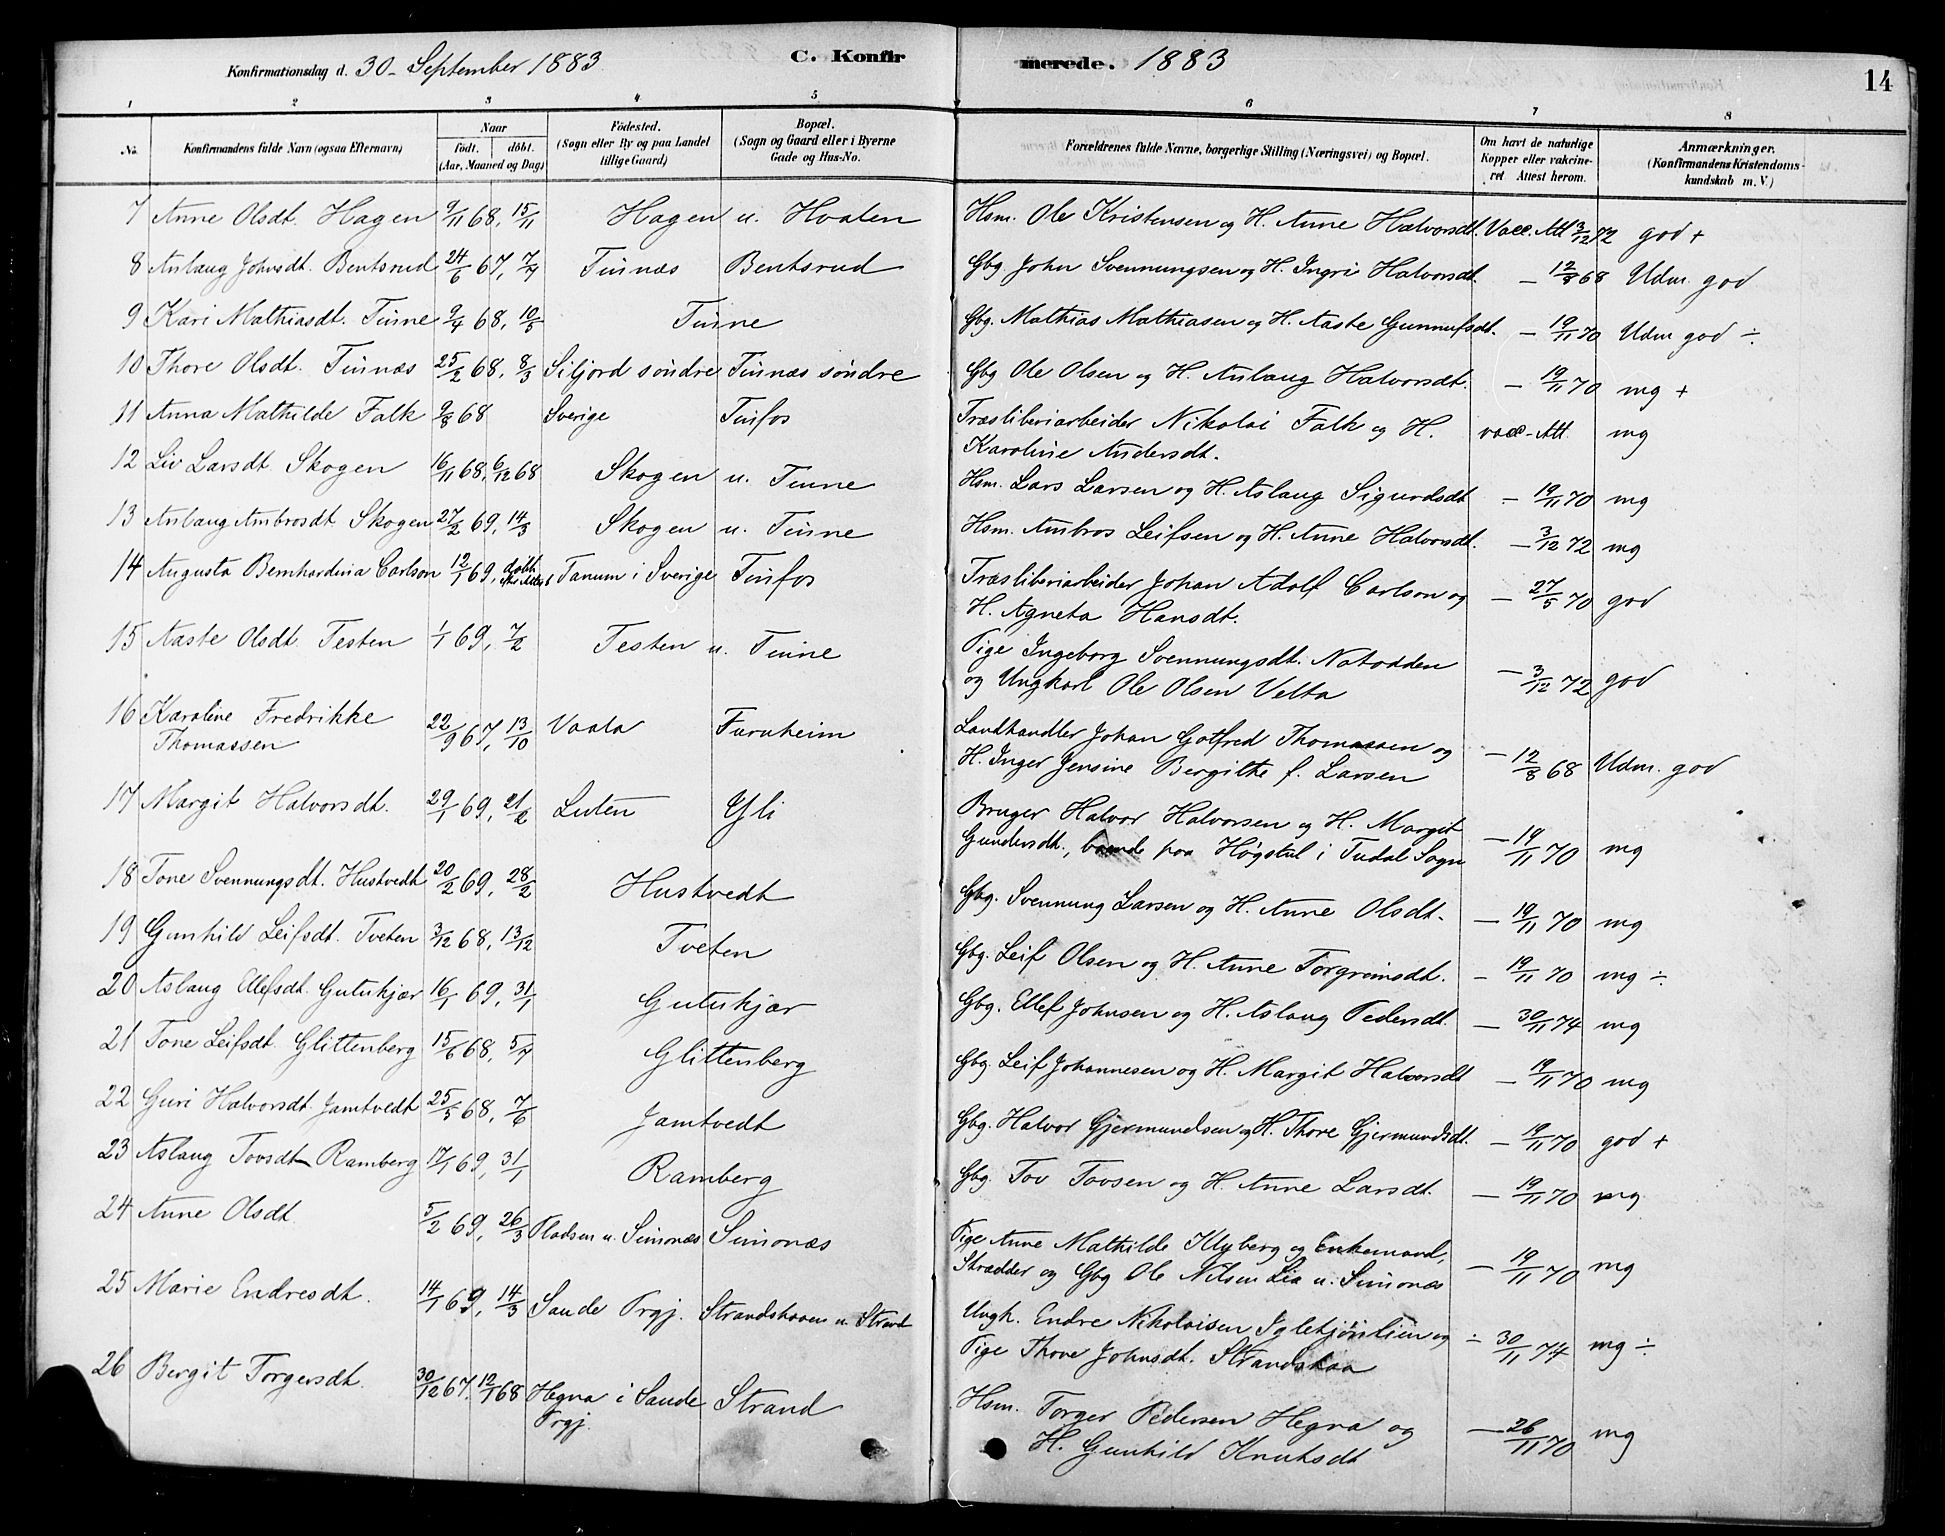 Konfirmationsdag d. 30. September 1883 C. Konfirmerede. 1883 14
1 2 3 4 5 6 7 8
No. Konfirmandens fulde Navn (ogsaa Efternavn) Naar født. døbt. (Aar, Maaned og Dag) Födested. (Sogn eller By og paa Landet tillige Gaard) Bopæl. (Sogn og Gaard eller i Byerne Gade og Hus-No. Forældrenes fulde Navne, borgerlige Stilling (Næringsvei) og Bopæl. Om havt de naturlige Kopper eller vakcineret Attest herom. Anmærkninger. (Konfirmandens Kristendomskundskab m. V.)
7 Anne Olsdt. Hagen 9/11 68, 15/11 Hagen u. Hvaten Hsm. Ole Kristensen og H. Anne Halvorsdt. Vacc. Att 3/12 72 god +
8 Aslaug Johnsdt. Bentsrud 24/6 67, 7/7 Tinnæs Bentsrud Gbg. John Svennungsen og H. Ingri Halvorsdt. — 12/8 68 Udm. god
9 Kari Mathiasdt. Tinne 9/4 68, 10/5 Tinne Gbg. Mathias Mathiasen og H. Aaste Gunnufsdt. — 19/11 70 Udm god ÷
10 Thore Olsdt. Tinnæs 25/2 68, 8/3 Siljord søndre Tinnæs søndre Gbg Ole Olsen og H. Aslaug Halvorsdt. — 19/11 70 mg +
11 Anna Mathilde Falk 9/8 68 Sverige Tinfos Træsliberiarbeider Nikolai Falk og H. vacc. Att. mg
Karoline Andersdt.
12 Liv Larsdt. Skogen 16/11 68, 6/12 68 Skogen u. Tinne Hsm. Lars Larsen og H. Aslaug Sigurdsdt — 19/11 70 mg
13 Aslaug Ambrosdt. Skogen 27/2 69, 14/3 Skogen u. Tinne Hsm. Ambros Leifsen og H. Anne Halvorsdt. — 3/12 72 mg
14 Augusta Bernhardina Carlson 12/1 69, døbt Tanum i Sverige Tinfos Træsliberiarbeider Johan Adolf Carlson og — 27/5 70 god
H. Agneta Hansdt.
15 Aaste Olsdt. Testen 1/1 69, 7/2 Testen u. Tinne Pige Ingeborg Svennungsdt. Notodden — 3/12 72 god
og Ungkarl Ole Olsen Velta
16 Karoline Fredrikke 22/9 67, 13/10 Vaala Furuheim Landhandler Johan Gotfred Thomassen og — 12/8 68 Udm. god
Thomassen H. Inger Jensine Bergitte f. Larsen
17 Margit Halvorsdt. 29/1 69, 21/2 Luten Yli Bruger Halvor Halvorsen og H. Margit — 19/11 70 mg
Gundersdt., boende paa Høgstul i Tudal Sogn
18 Tone Svennungsdt. Hustvedt 20/2 69, 28/2 Hustvedt Gbg. Svennung Larsen og H. Anne Olsdt. — 19/11 70 mg
19 Gunhild Leifsdt. Tveten 3/12 68, 13/12 Tveten Gbg. Leif Olsen og H. Anne Torgrimsdt. — 19/11 70 mg ÷
20 Aslaug Ellefsdt. Gutukjær 16/1 69, 31/1 Gutukjær Gbg. Ellef Johnsen og H. Aslaug Pedersdt. — 30/11 74 mg
21 Tone Leifsdt. Glittenberg 15/6 68, 5/7 Glittenberg Gbg. Leif Johannesen og H. Margit Halvorsdt — 19/11 70 mg
22 Guri Halvorsdt. Jamtvedt 25/5 68, 7/6 Jamtvedt Gbg. Halvor Gjermundsen og H. Thore Gjermundsdt. — 19/11 70 god +
23 Aslaug Tovsdt. Ramberg 17/1 69, 31/1 Ramberg Gbg. Tov Tovsen og H. Anne Larsdt. — 19/11 70 mg
24 Anne Olsdt. 5/2 69, 26/3 Pladsen u. Simonæs Simonæs Pige Anne Mathilde Klyberg og Enkemand, — 19/11 70 mg
Skrædder og Gbg Ole Nilsen Lia u. Simonæs
25 Marie Endresdt. 14/1 69, 14/3 Saude Prgj. Strandskaaen u. Strand Ungk. Endre Nikolaisen Igletjønlien og ÷ 30/11 74 mg ÷
Pige Thone Johnsdt. Strandskaa
26 Bergit Torgersdt. 30/12 67. 12/1 68 Hegna i Saude Strand Hsm. Torger Pedersen Hegna og — 26/11 70 mg
Prgj. H. Gunhild Knutsdt